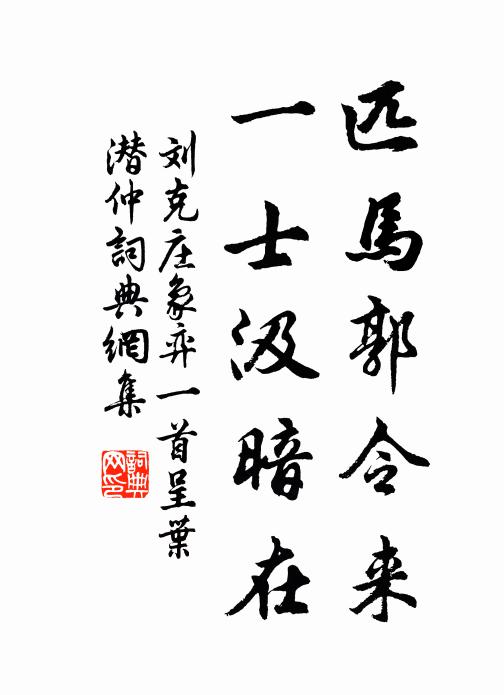 匹馬郭令来
一士汲暗在
刘克庄象弈一首呈葉
潜仲詞典網集
詞典
网印